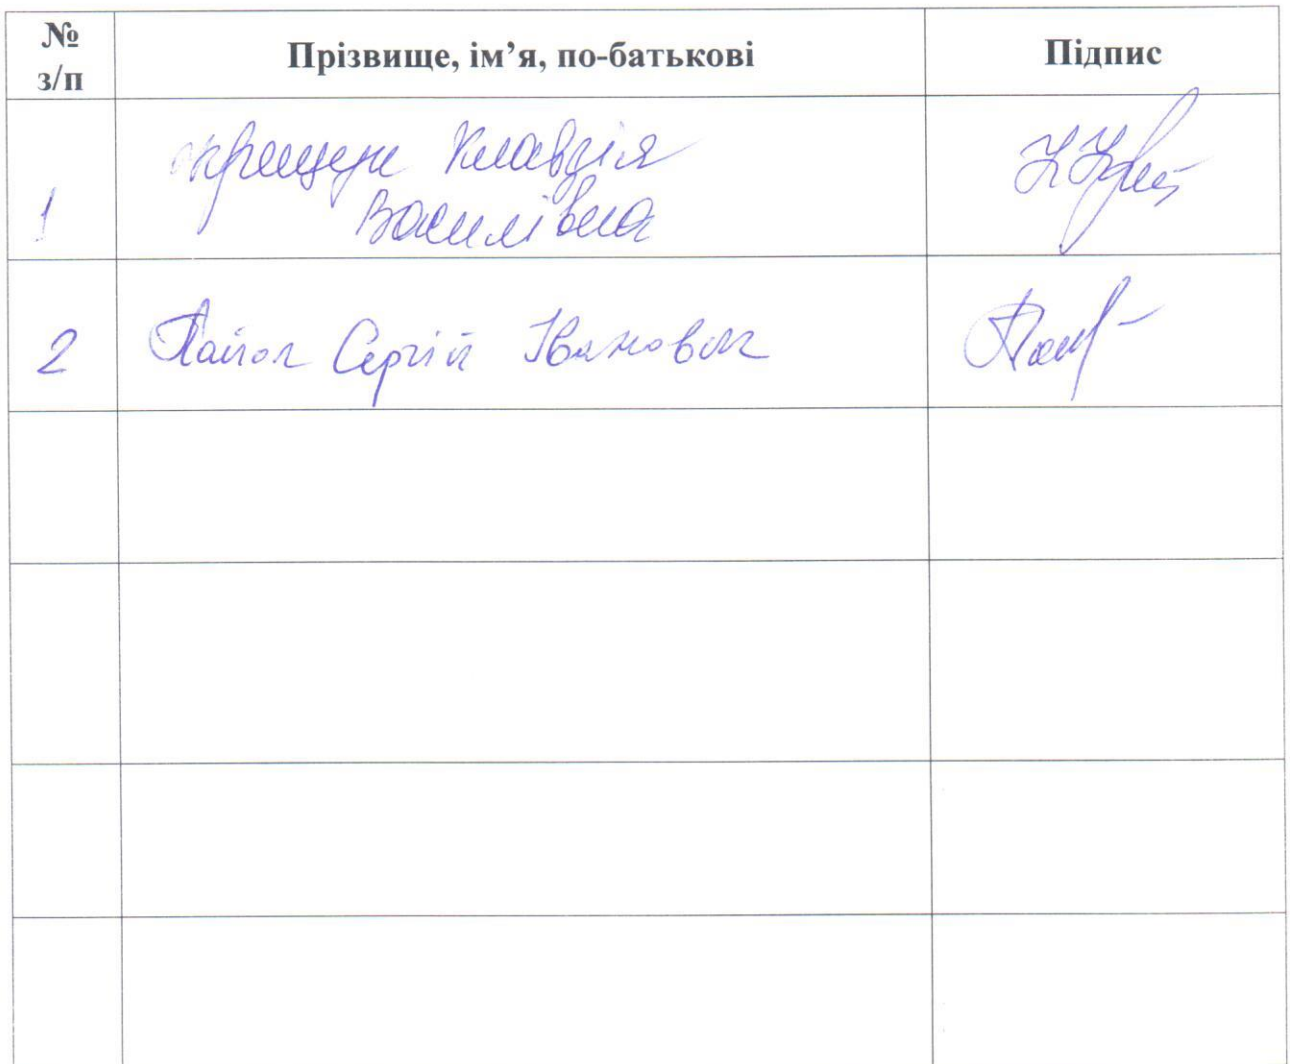 № з/п Прізвище, ім’я, по-батькові Підпис
1 Клавдія
Василівна
2 Сергій Іванович